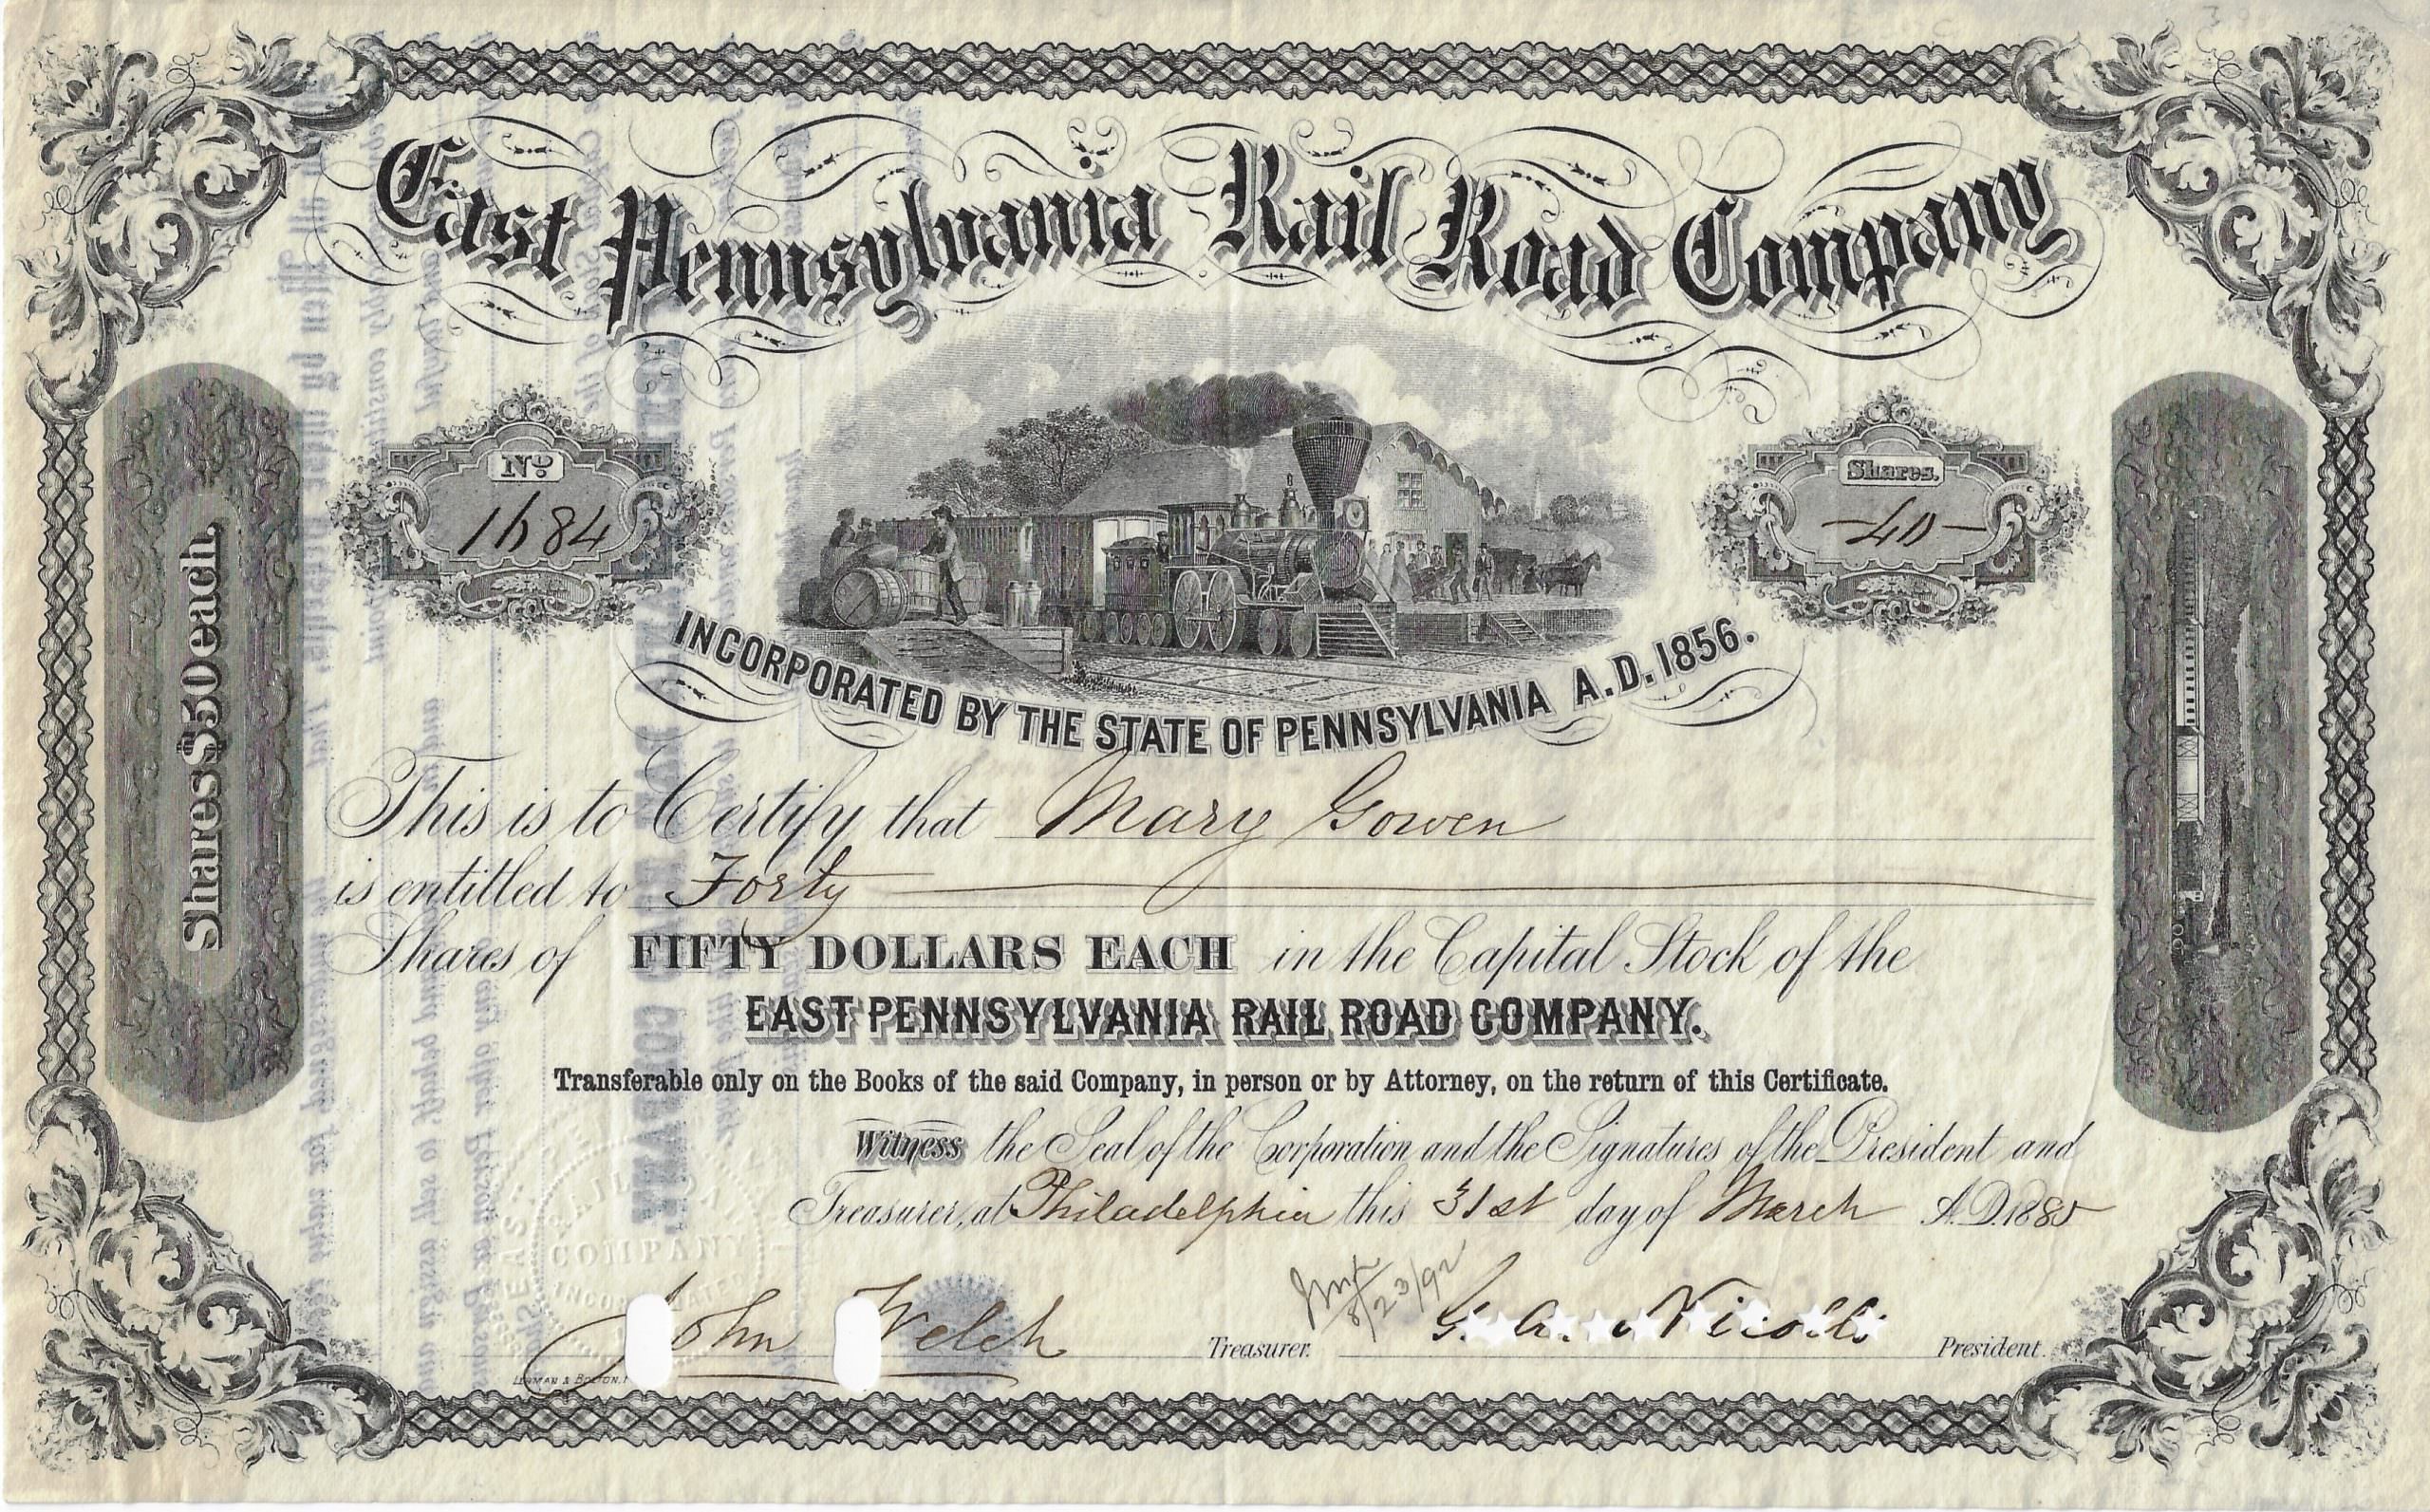 East Pennsylvania Rail Road Company
No
1684
Shares.
-40-
INCORPORATED BY THE STATE OF PENNSYLVANIA A.D. 1856.
Shares $50 each.
This is to Certify that Mary Gowen
is entitled to Forty
Shares of FIFTY DOLLARS EACH in the Capital Stock of the
EAST PENNSYLVANIA RAIL ROAD COMPANY.
Transferable only on the Books of the said Company, in person or by Attorney, on the return of this Certificate.
Witness the Seal of the Corporation and the Signatures of the President and
Treasurer, at Philadelphia this 31st day of March A.D. 1885
8/23/92
John Welch Treasurer. G. A. Nicolls President.
LEHMAN & BOLTON
RAILROAD
COMPANY